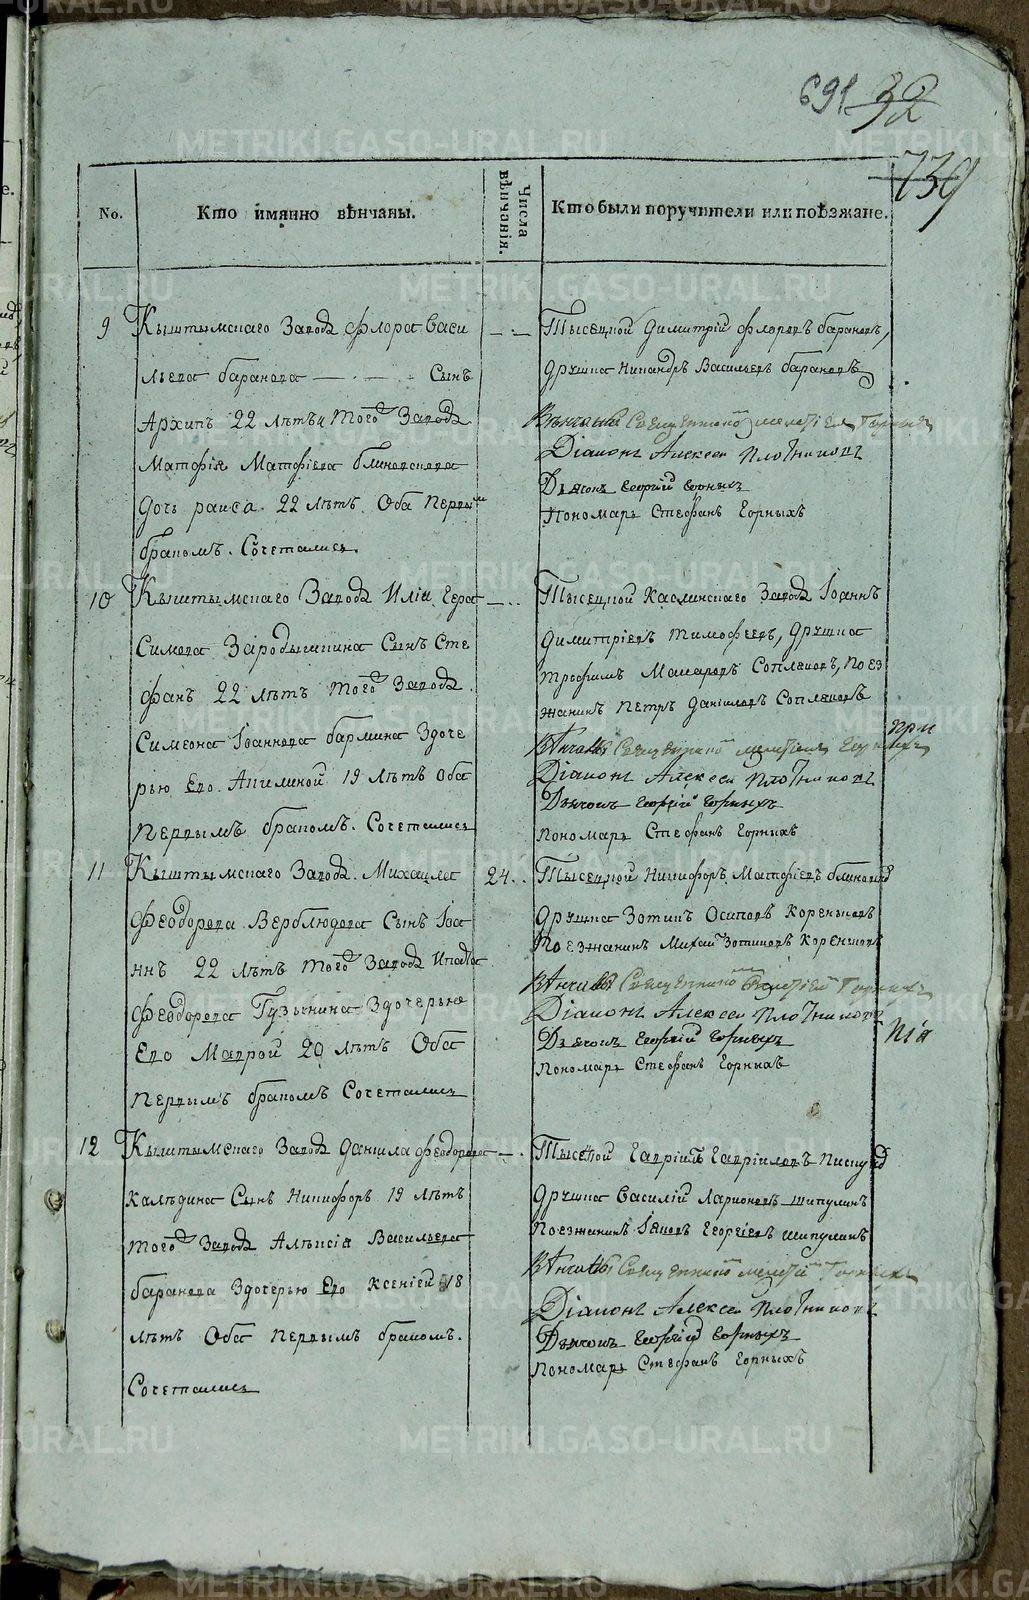 691 32
739
No.
Кто имянно вѣнчаны.
Числа вѣнчанія.
Кто были поручители или поѣзжане.
9 Кыштымскаго Завода Флора Васи
льева баранова — · — · Сынъ
Архипъ 22 лѣтъ Того Завода
Матфія Матфіева блиновскова
дочь раиса. 22 лѣтъ. Оба Первым
бракомъ. Сочетались.
— · —
Тысецкой Димитрій Флоровъ барановъ,
Дружка Никандръ Васильевъ барановъ
Вѣнчалъ Священникъ Мелетій Горныхъ
Діаконъ Алексеи Плотниковъ
Дьячокъ Георгій Горныхъ
Пономарь Стефанъ Горныхъ
10 Кыштымскаго Завода Иліи Гера
симова Зародышкина Сынъ Сте
фанъ 22 лѣтъ Того Завода.
Симеона Іоаннова бармина Здоче
рью Его. Акилиной 19 лѣтъ Оба
Первымъ бракомъ. Сочетались
— · ·
Тысецкой Каслинскаго Завода Іоаннъ
Димитріевъ Тимофеевъ, Дружка
Трофимъ Макаровъ Сопляковъ, Поез
жанинъ Петръ Даніиловъ Сопляковъ
Вѣнчалъ Священникъ Мелетій Горныхъ
при
Діаконъ Алексеи Плотниковъ
Дьячокъ Георгій Горныхъ
Пономарь Стефанъ Горныхъ
11 Кыштымскаго Завода. Михаила
Феодорова Верблюдова Сынъ Іоа
ннъ 22 лѣтъ Того Завода Ипата
Феодорова Гузынина Здочерью
Его Маврой 20 лѣтъ Оба
Первымъ бракомъ Сочетались
24. .
Тысецкой Никифоръ Матфіевъ блиновсков
Дружка Зотикъ Осиповъ Кореньковъ
Поезжанинъ Михаи Зотиковъ Кореньковъ
Вѣнчалъ Священникъ Мелетій Горныхъ
Діаконъ Алексеи Плотниковъ
пія
Дьячокъ Георгій Горныхъ
Пономарь Стефанъ Горныхъ
12 Кыштымскаго Завода Данила Феодорова
Калѣдина Сынъ Никифоръ 19 лѣтъ
Того Завода Алѣксія Васильева
баранова Здочерью Его Ксеніей 18
лѣтъ Оба Первымъ бракомъ.
Сочетались
— ·
Тысецкой Гавріилъ Гавріиловъ
Дружка Василій Ларионовъ Шипулинъ
Поезжанинъ Іяковъ Георгіевъ Шипулинъ
Вѣнчалъ Священникъ Мелетій Горныхъ
Діаконъ Алексеи Плотниковъ
Дьячокъ Георгій Горныхъ
Пономарь Стефанъ Горныхъ
METRIKI.GASO-URAL.RU